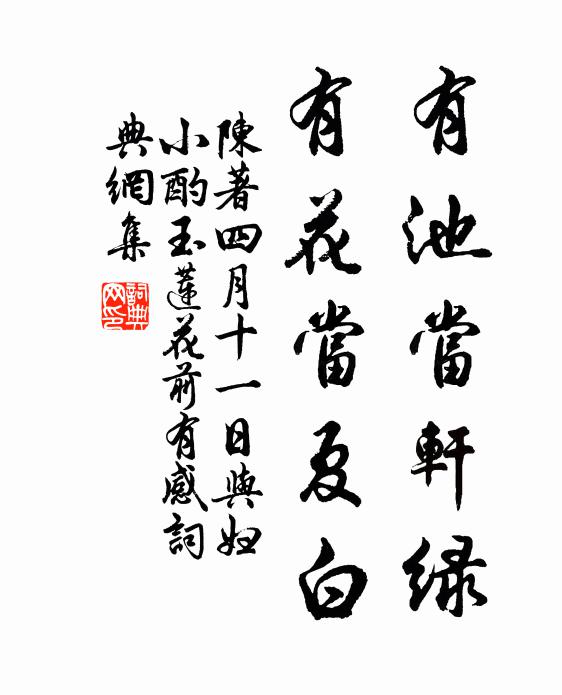 有池當軒綠
有花當夏白
陳著四月十一日與妞
小酌玉蓮花前有感詞
典網集
詞典
网印